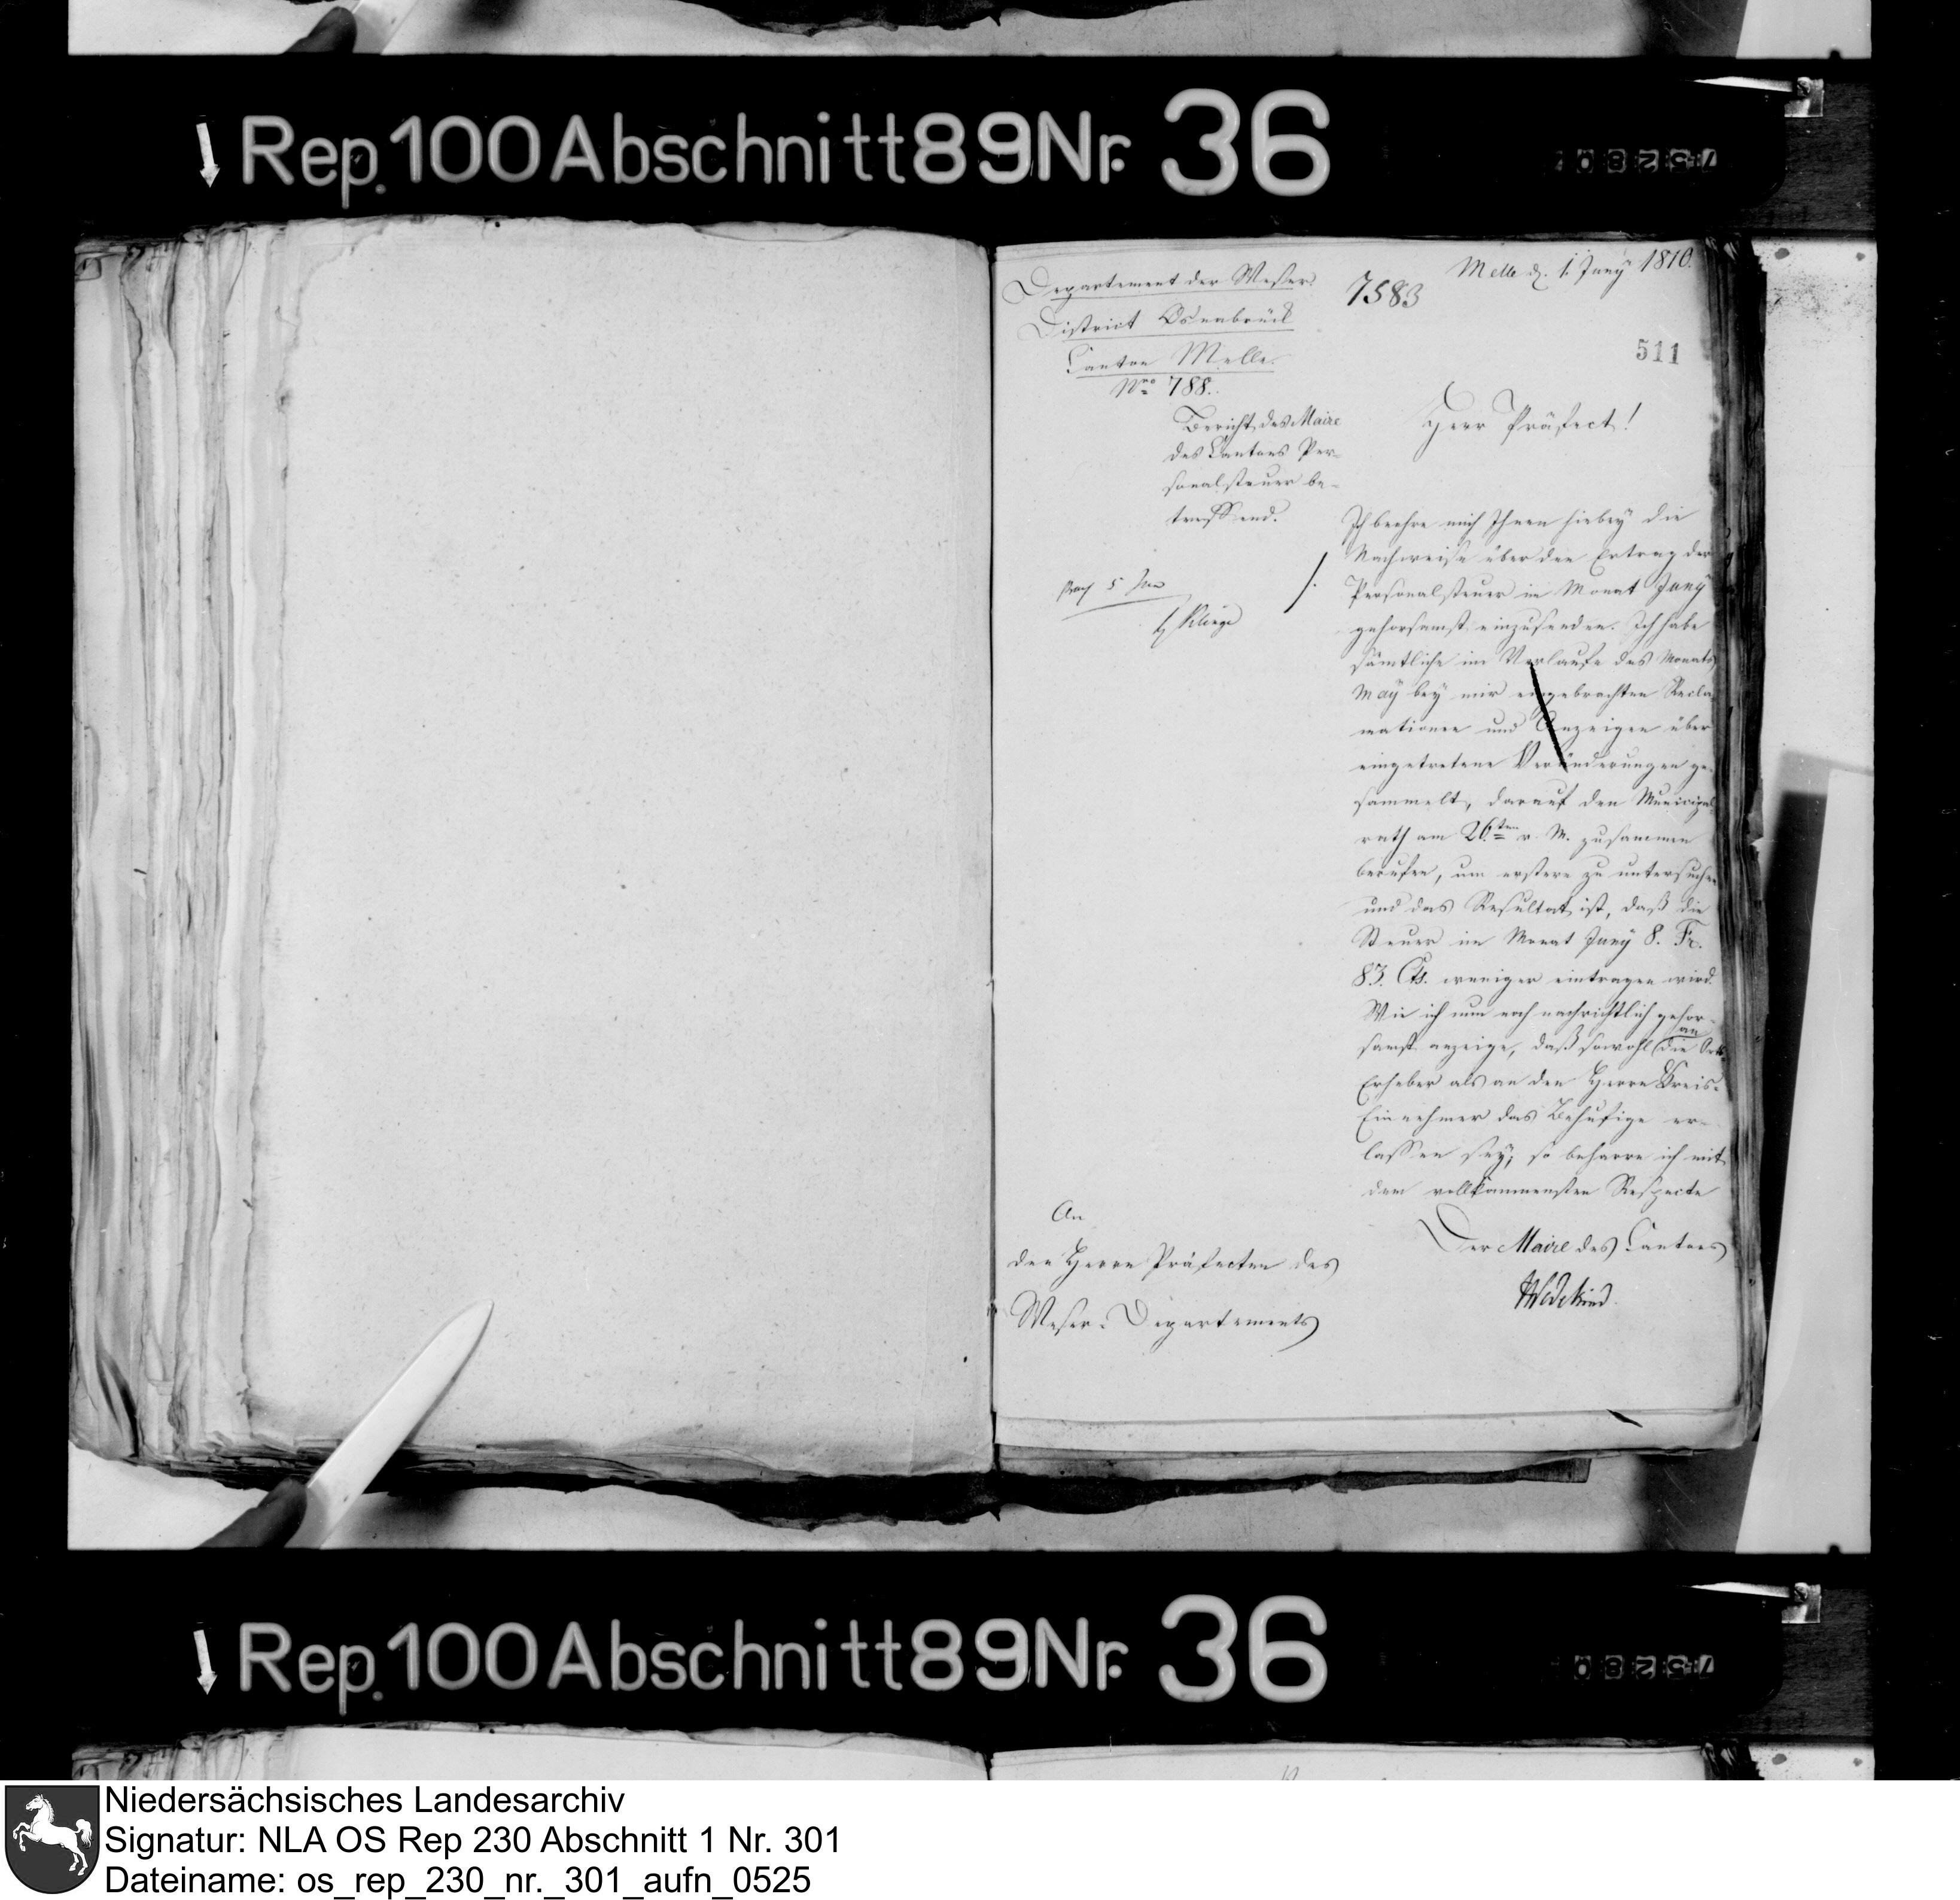 Rep. 100 Abschnitt 89 Nr. 36
Departement der Weser
District Osnabrück
Canton Melle.
Nro 788.
Melle d. 1. Juny 1810.
7583
511
Bericht des Maire
des Cantons Per-
sonalsteuer be-
treffend.
Herr Präfect!
Ich beehre mich Ihnen hiebey die
Nachweise über den Ertrag der
Personalsteuer im Monat Juny
gehorsamst einzusenden. Ich habe
sämtliche im Verlaufe des Monats
May bey mir eingebrachten Recla-
mationen und Anzeigen über
eingetretene Veränderungen ge-
sammelt, darauf den Municipal-
rath am 26.ten v. M. zusammen
berufen, um erstere zu untersuchen
und das Resultat ist, daß die
Steuer im Monat Juny 8. Fr.
83. Cts. weniger eintragen wird.
Wie ich nun noch nachrichtlich gehor-
samst anzeige, daß sowohl an die Orts-
Erheber als an den Herrn Kreis-
Einnehmer das Behufige er-
lassen sey; so beharre ich mit
dem vollkommensten Respecte
Der Maire des Cantons
Wedekind.
5 Jun
An
den Herrn Präfecten des
Weser-Departements
Rep. 100 Abschnitt 89 Nr. 36
Niedersächsisches Landesarchiv
Signatur: NLA OS Rep 230 Abschnitt 1 Nr. 301
Dateiname: os_rep_230_nr._301_aufn_0525